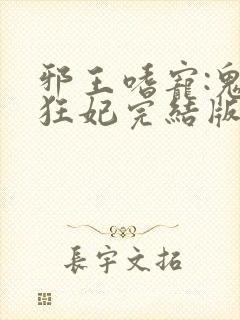 邪王嗜寵:鬼
狂妃完結版
長宇文拓